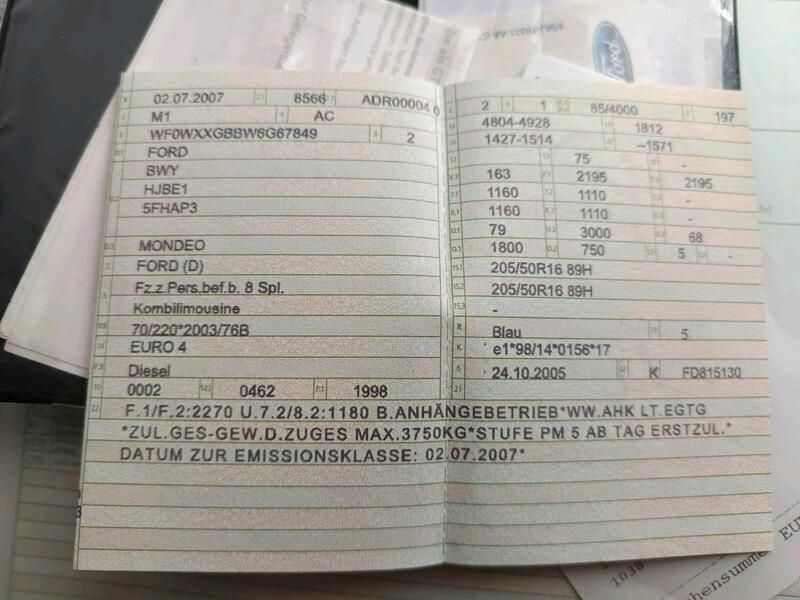 02.07.2007 8566 ADR00004 0
M1 AC
WF0WXXGBBW6G67849 2
FORD
BWY
HJBE1
5FHAP3
MONDEO
FORD (D)
Fz.z.Pers.bef.b. 8 Spl.
Kombilimousine
70/220*2003/76B
EURO 4
Diesel
0002 0462 1998
2 1 85/4000 197
4804-4928 1812
1427-1514 --1571
75 -
163 2195 2195
1160 1110 -
1160 1110 -
79 3000 68
1800 750 5 -
205/50R16 89H
205/50R16 89H
-
Blau 5
e1*98/14*0156*17
24.10.2005 K FD815130
F.1/F.2:2270 U.7.2/8.2:1180 B.ANHÄNGEBETRIEB*WW.AHK LT.EGTG
*ZUL.GES-GEW.D.ZUGES MAX.3750KG*STUFE PM 5 AB TAG ERSTZUL.*
DATUM ZUR EMISSIONSKLASSE: 02.07.2007*
Ford
1038